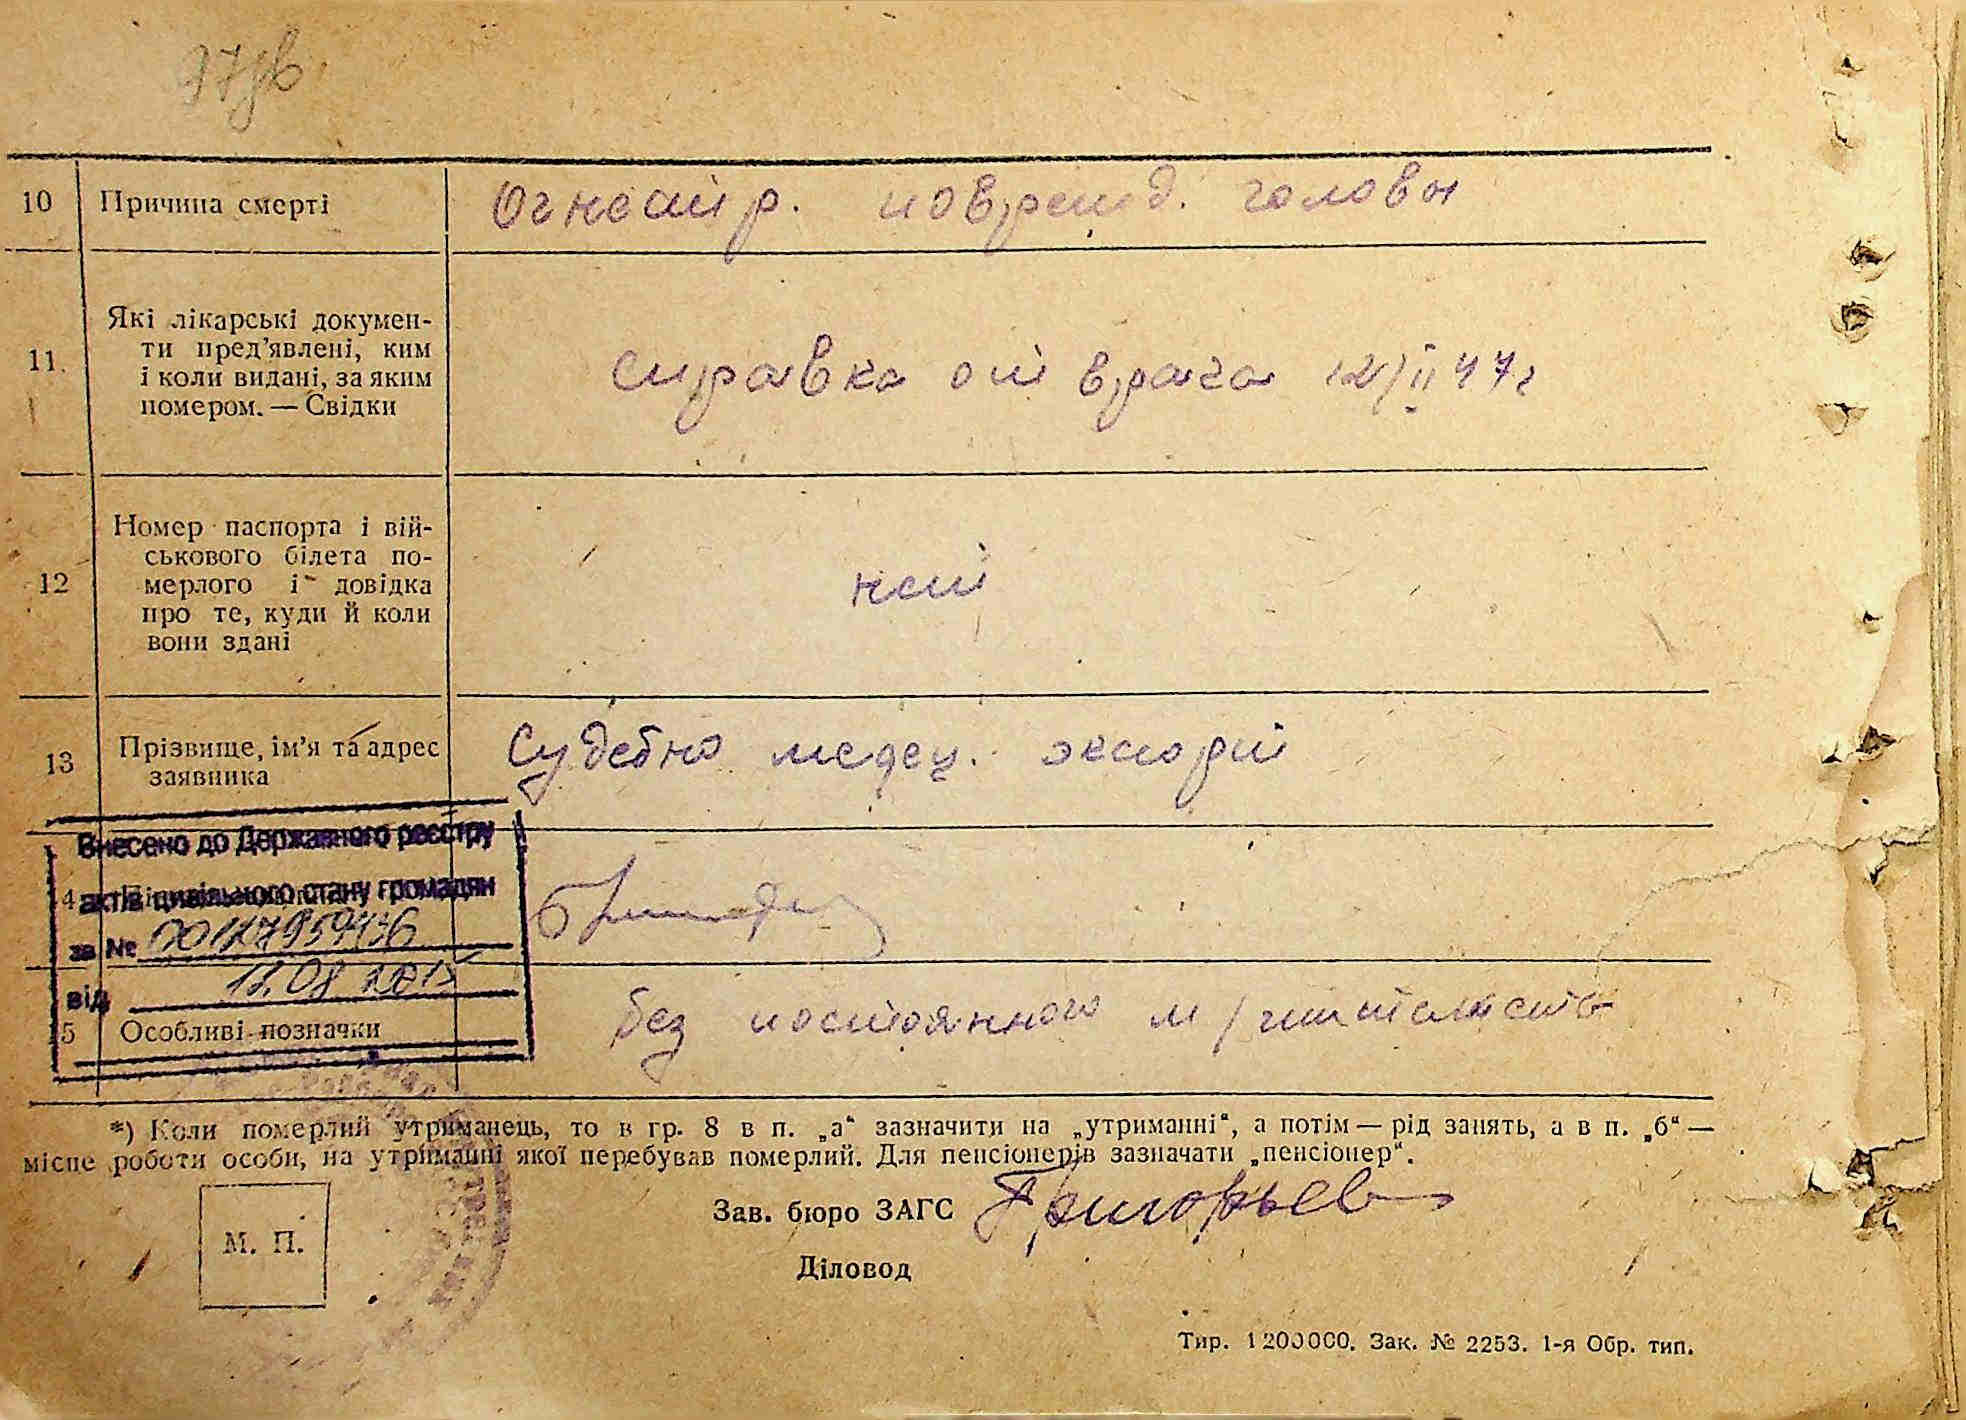 10 Причина смерті Огнестр. поврежд. головы
11. Які лікарські докумен-
ти пред'явлені, ким
і коли видані, за яким
номером. — Свідки
Справка от врача 12/II 47г
12 Номер паспорта і вій-
ськового білета по-
мерлого і довідка
про те, куди й коли
вони здані
нет
13 Прізвище, ім'я та адрес
заявника
Судебно медец. экспорт
Внесено до Державного реєстру
актів цивільного стану громадян
за № 00127959436
від 12.08 2015
15 Особливі позначки без постоянного м/жительств
*) Коли померлий утриманець, то в гр. 8 в п. „а“ зазначити на „утриманні“, а потім — рід занять, а в п. „б“ —
місце роботи особи, на утриманні якої перебував померлий. Для пенсіонерів зазначати „пенсіонер“.
Зав. бюро ЗАГС Григорьев
М. П.
Діловод
Тир. 1200000. Зак. № 2253. 1-я Обр. тип.